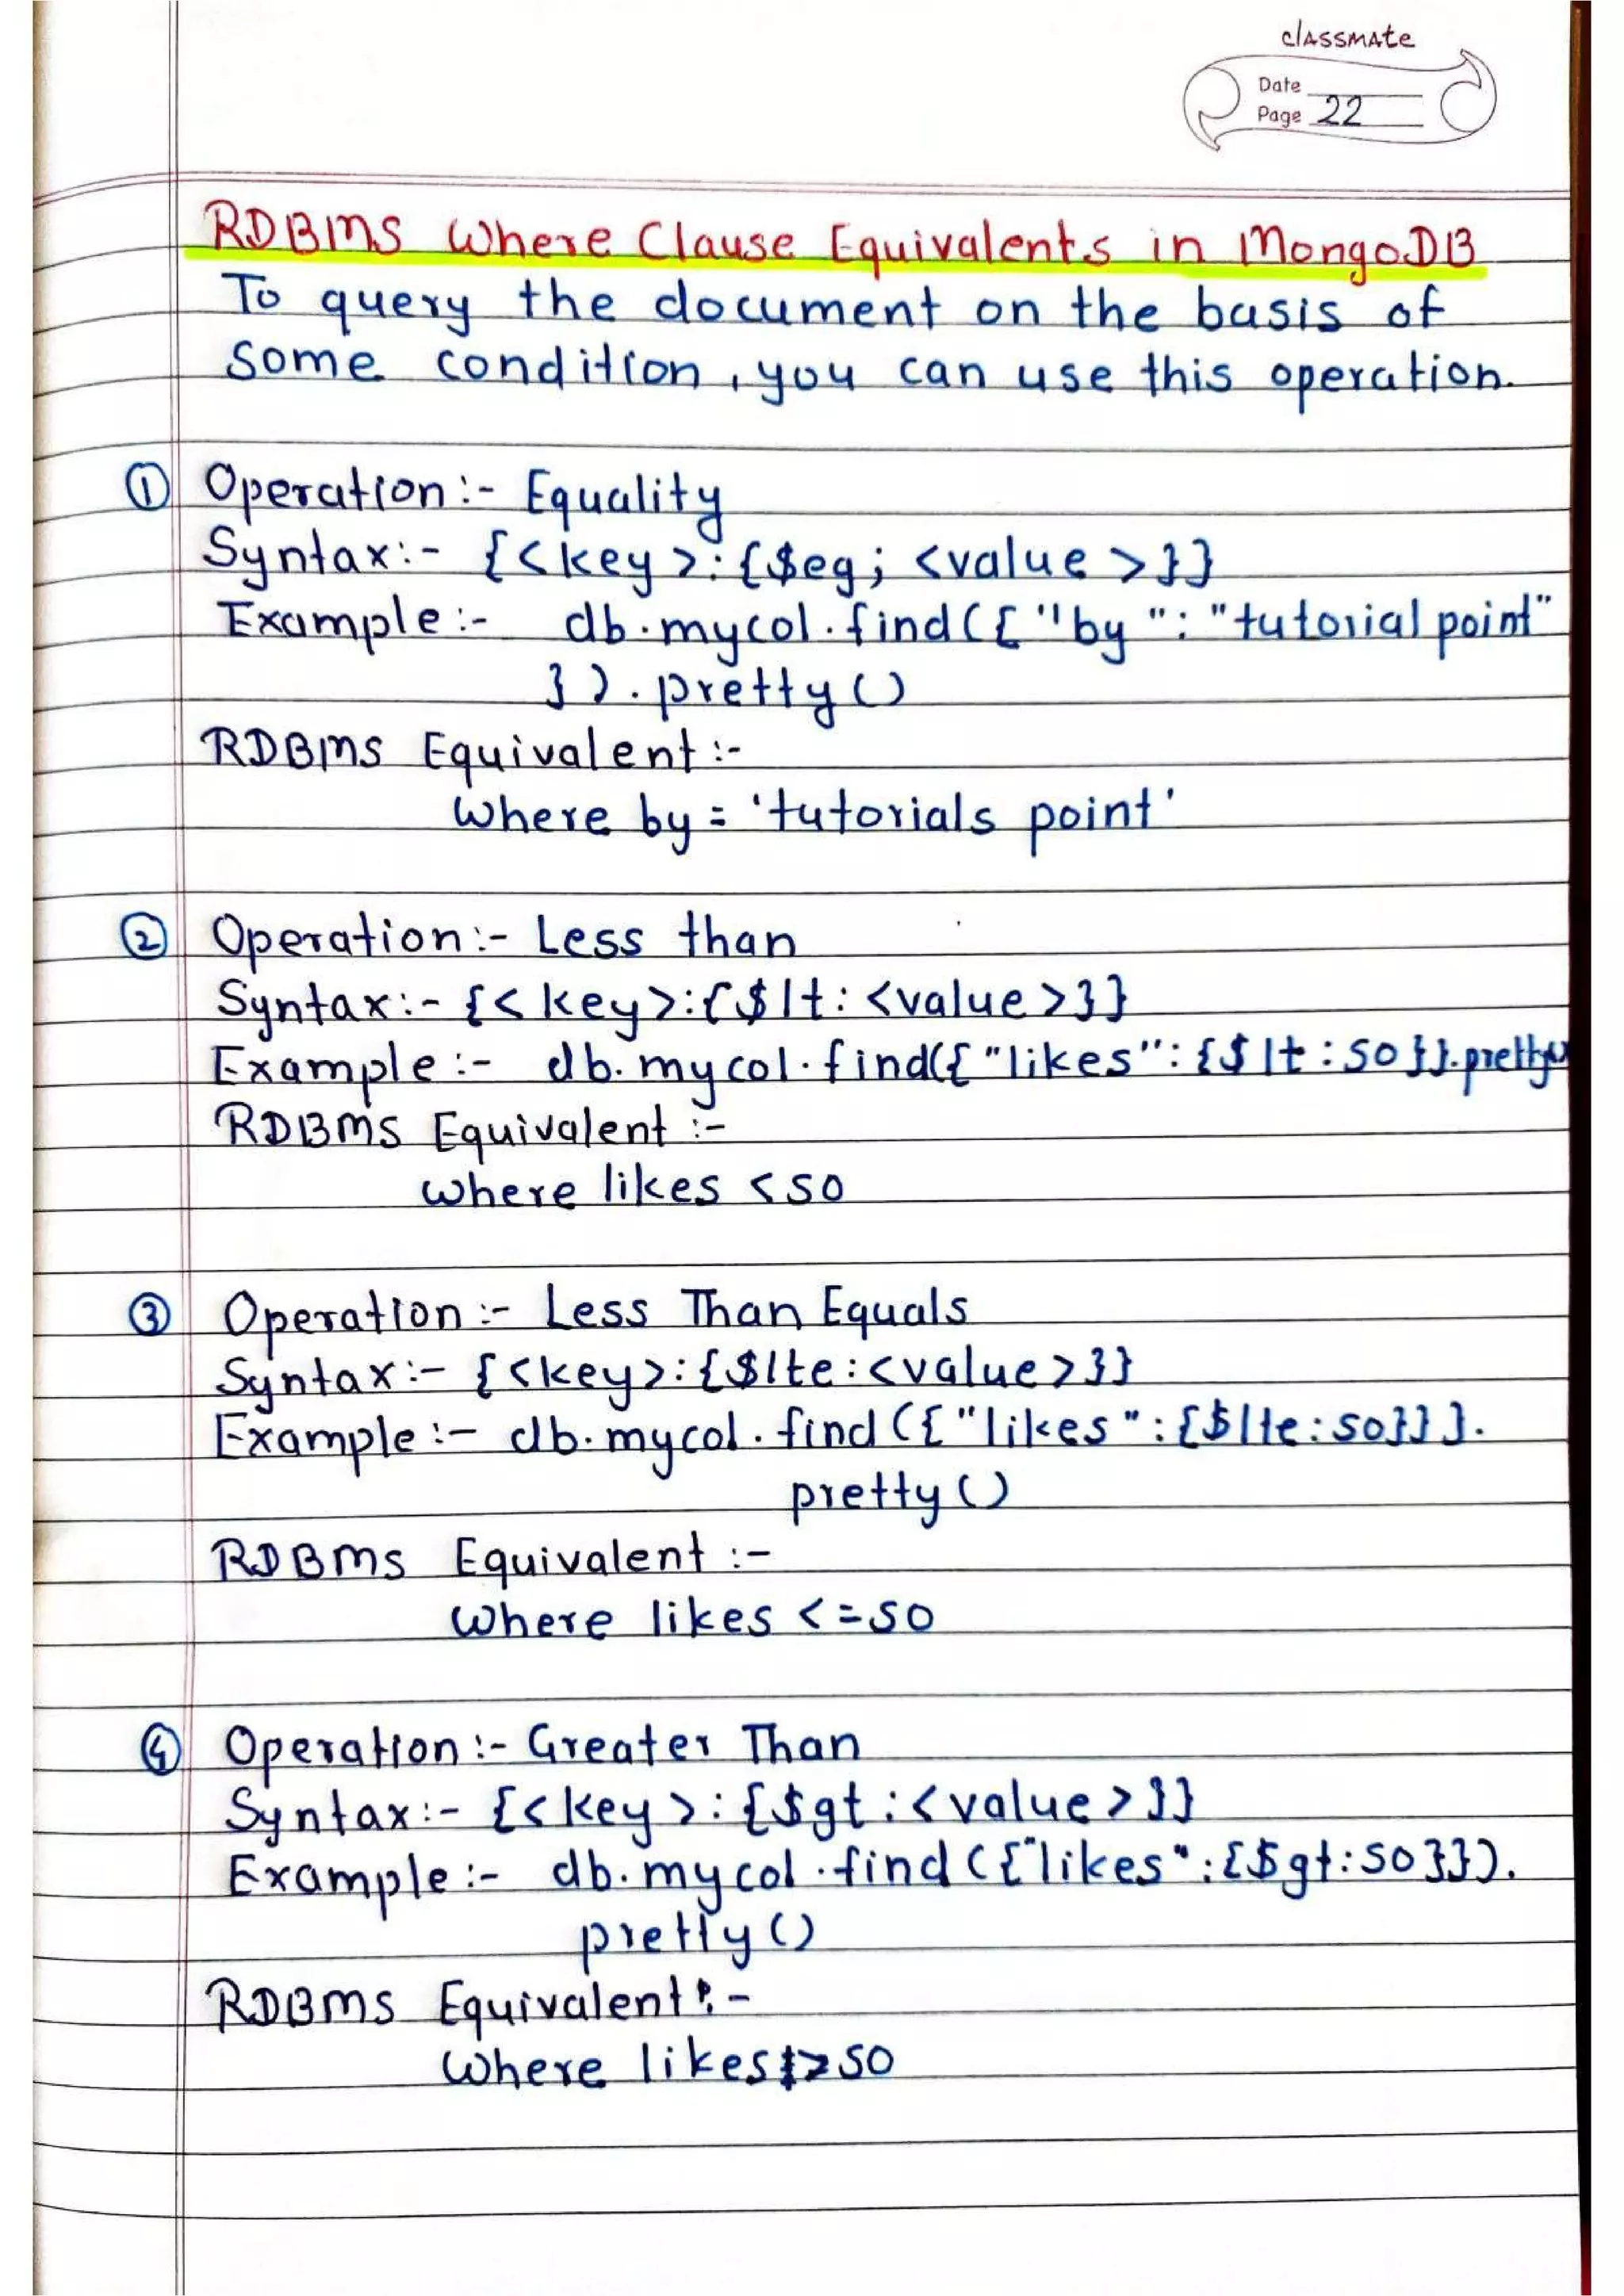 classmate
Date
Page 22
RDBMS Where Clause Equivalents in MongoDB
To query the document on the basis of
some condition, you can use this operation.
① Operation :- Equality
Syntax :- {<key>:{$eg; <value>}}
Example :- db.mycol.find({"by": "tutorial point"
}).pretty()
RDBMS Equivalent :-
Where by = 'tutorials point'
② Operation :- Less than
Syntax :- {<key>:{$lt: <value>}}
Example :- db.mycol.find({"likes":{$lt:50}}.pretty()
RDBMS Equivalent :-
where likes <50
③ Operation :- Less Than Equals
Syntax :- {<key>:{$lte:<value>}}
Example :- db.mycol.find({"likes":{$lte:50}}}.
pretty()
RDBMS Equivalent :-
Where likes <=50
④ Operation :- Greater Than
Syntax :- {<key>:{$gt:<value>}}
Example :- db.mycol.find({"likes":{$gt:50}}).
pretty()
RDBMS Equivalent :-
Where likes >50